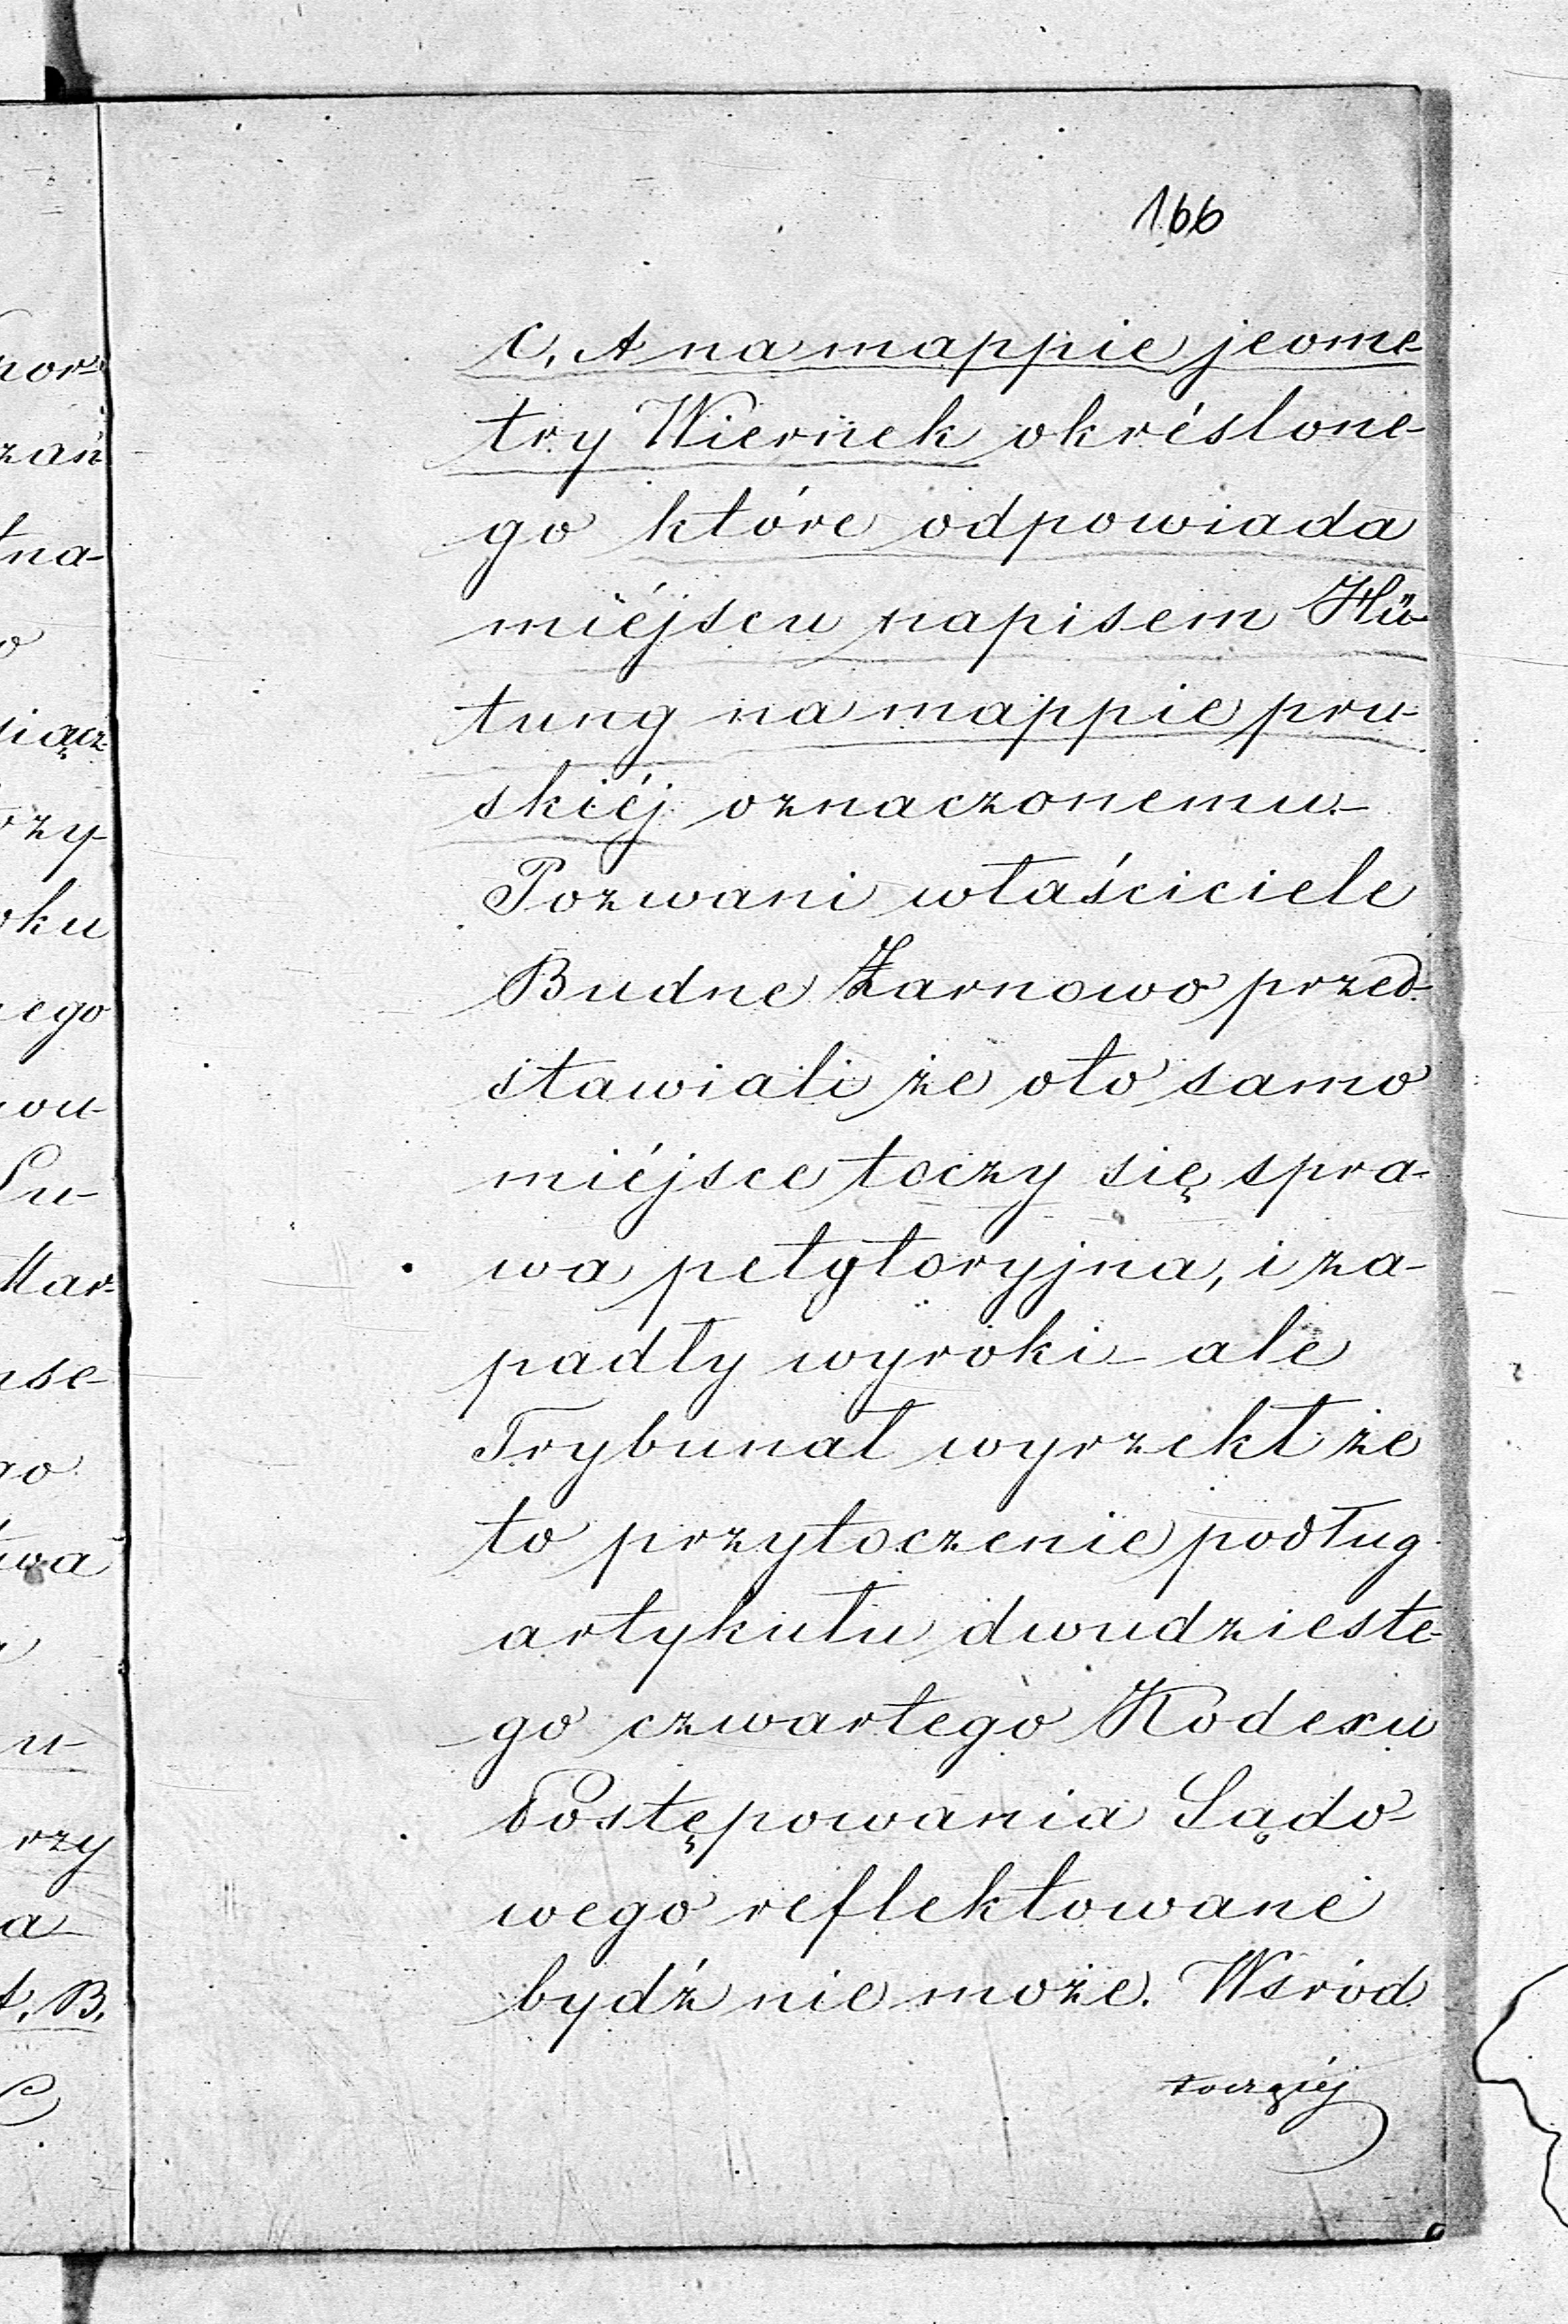 166
C, A na mappie jeome-
try Wiernek okréslone-
go które odpowiada
miéjscu napisem Hü-
tung na mappie pru-
skiéj oznaczonemu.-
Pozwani właściciele
Budne Żarnowo przed-
stawiali że oto samo
miéjsce toczy się spra-
wa petytoryjna, i za-
padły wyroki ale
Trybunał wyrzekł że
to przytoczenie podług
artykułu dwudzieste-
go czwartego Kodexu
Postępowania Sądo-
wego reflektowane
bydź nie może. Wsród